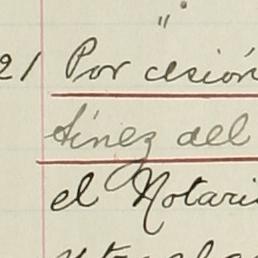 "
21 Por cesión
tínez del
el Notari